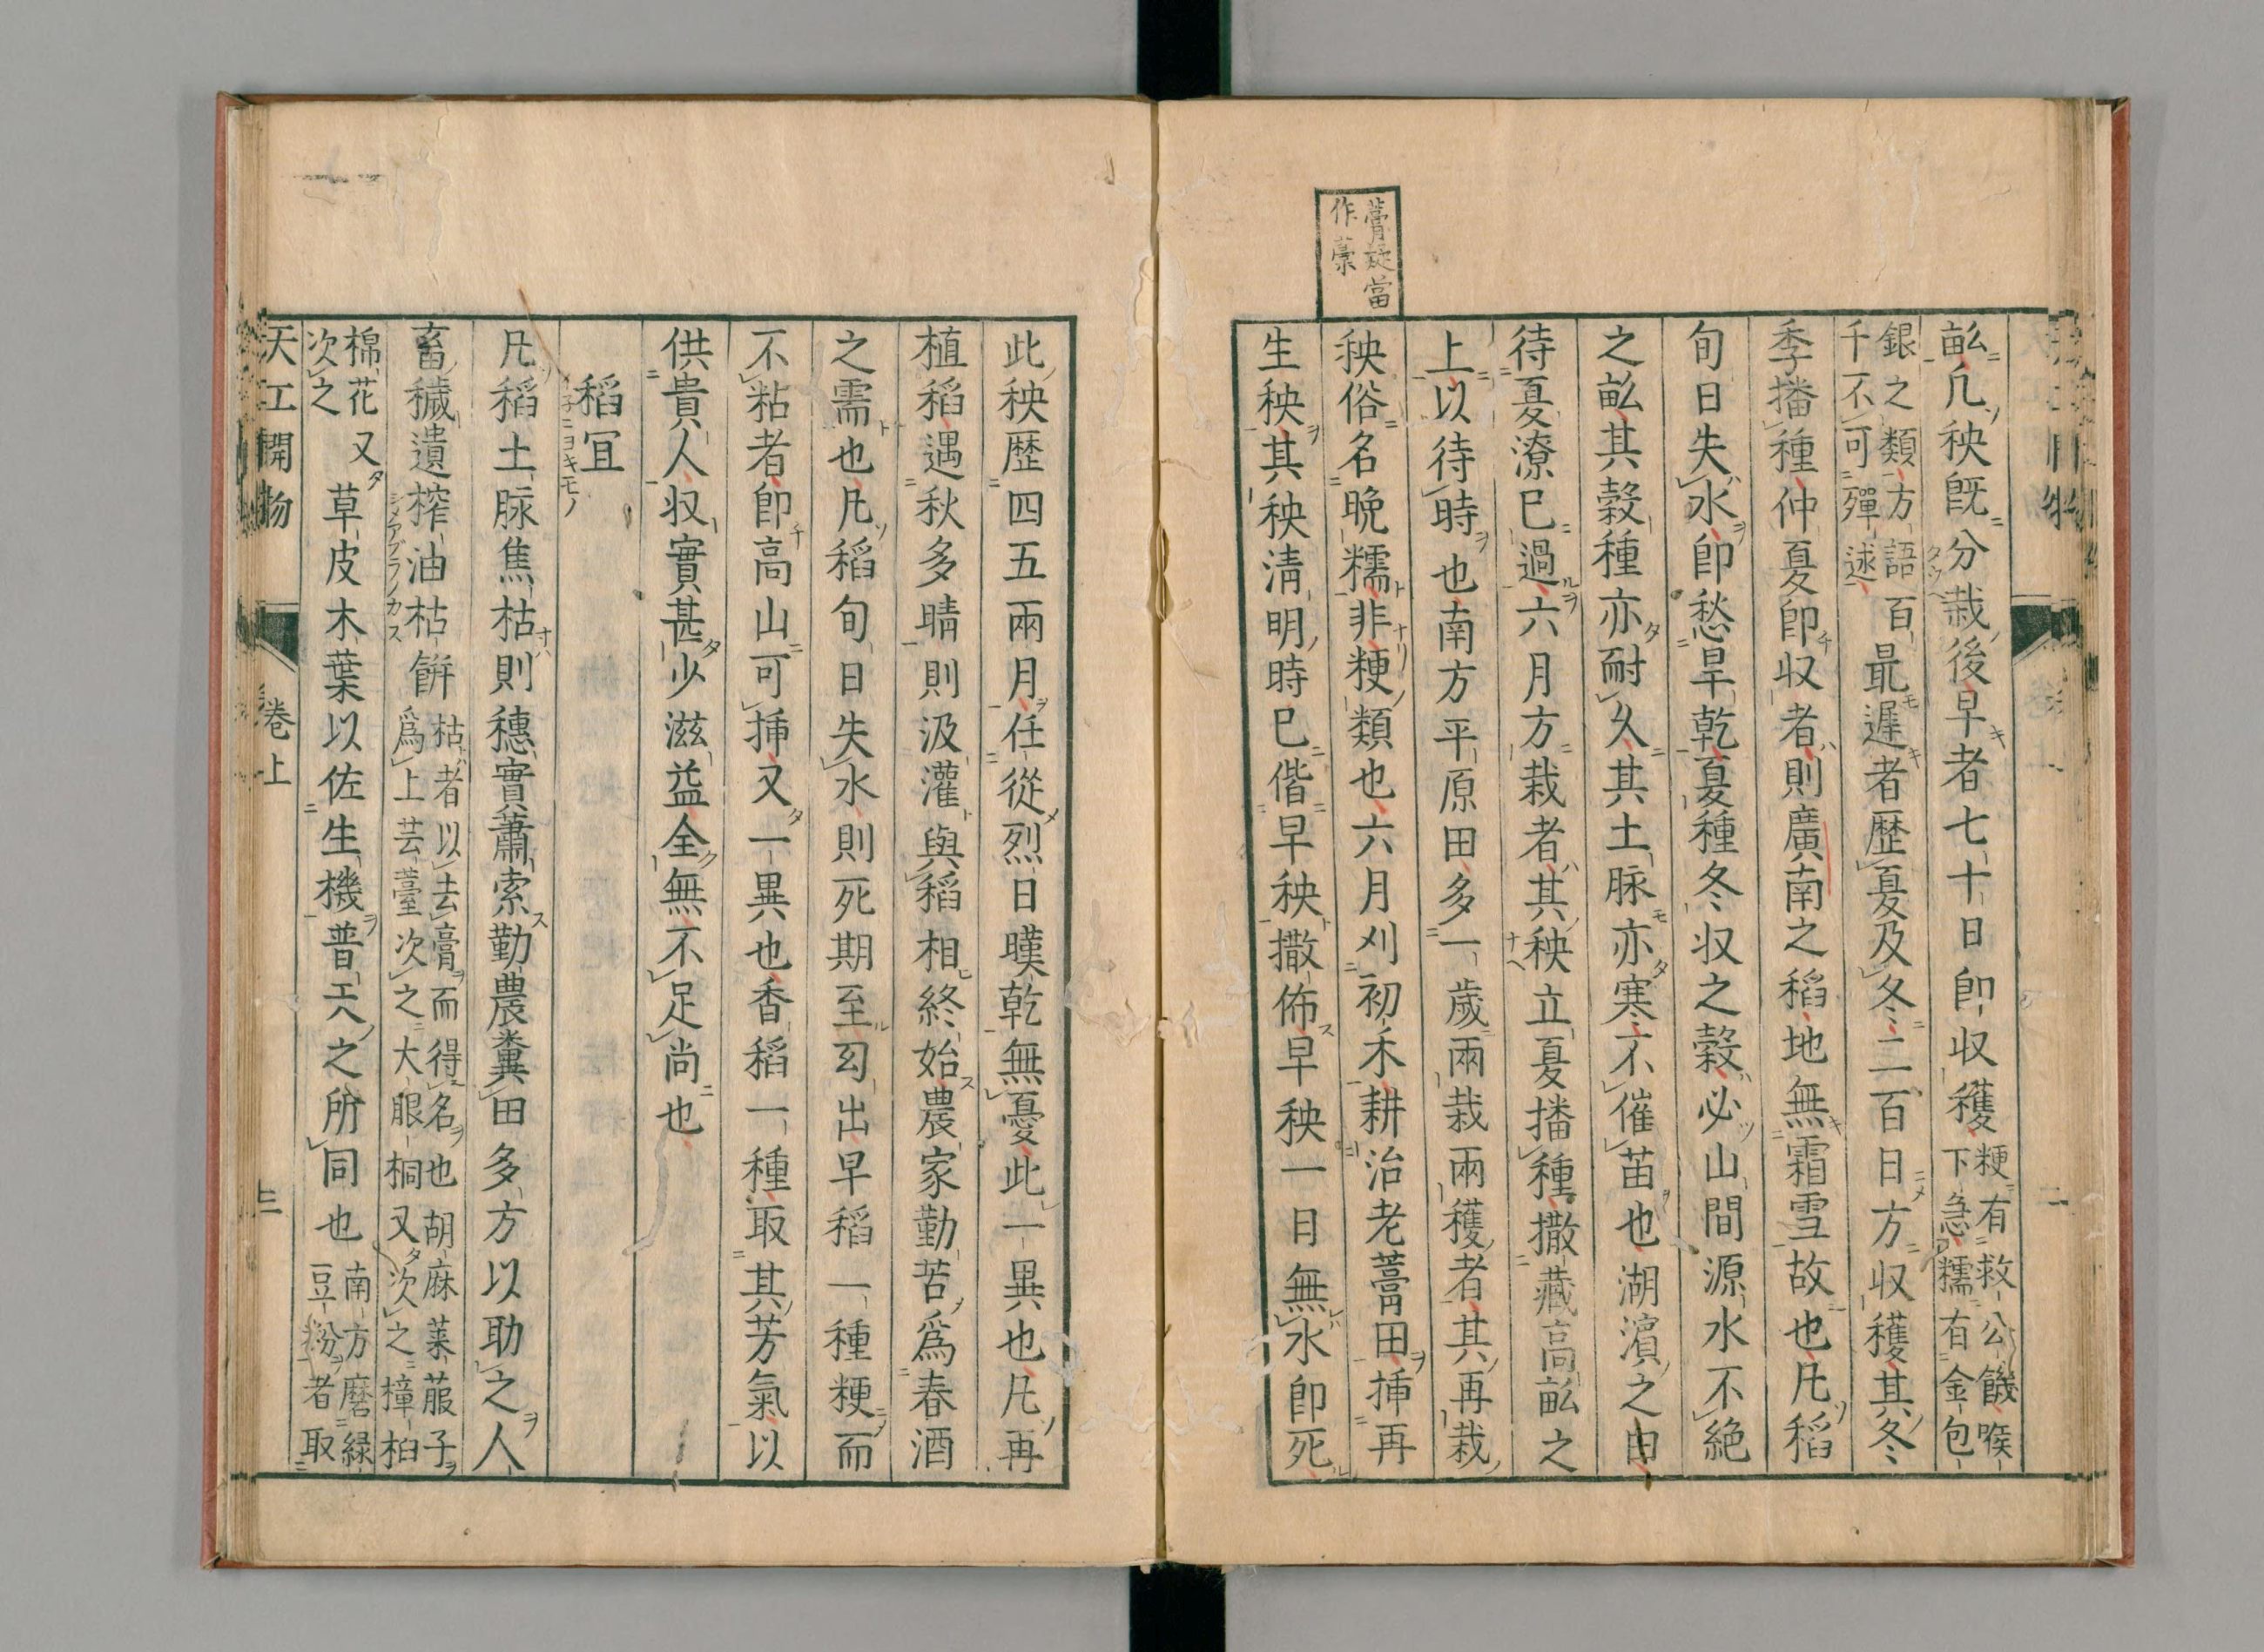 畝凢秧既分栽後早者七十日卽収穫粳有救公饑喉下急糯有金包
銀之類方語百千不可殫述最遲者歴夏及冬二百日方収穫其冬
季播種仲夏卽収者則廣南之稻地無霜雪故也凡稻
旬日失水卽愁旱乾夏種冬収之穀必山間源水不絶
之畝其穀種亦耐久其土脉亦寒不催苗也湖濵之田
待夏潦已過六月方栽者其秧立夏播種撒藏高畝之
上以待時也南方平原田多一歲兩栽兩穫者其再栽
秧俗名晩糯非粳類也六月刈初禾耕治老藁田挿再
生秧其秧淸明時已偕早秧撒佈早秧一日無水卽死
此秧歴四五兩月任從烈日暵乾無憂此一異也凡再
植稻遇秋多晴則汲灌與稻相終始農家勤苦爲春酒
之需也凡稻旬日失水則死期至幻出早稻一種粳而
不粘者卽高山可挿又一異也香稻一種取其芳氣以
供貴人収實甚少滋益全無不足尚也
稻宜
凡稻土脉焦枯則穗實蕭索勤農糞田多方以助之人
畜穢遺榨油枯餅枯者以去膏而得名也胡麻萊菔子爲上芸薹次之大眼桐又次之樟桕
棉花又次之草皮木葉以佐生機普天之所同也南方磨緑豆粉者取
天工開物 卷上 三